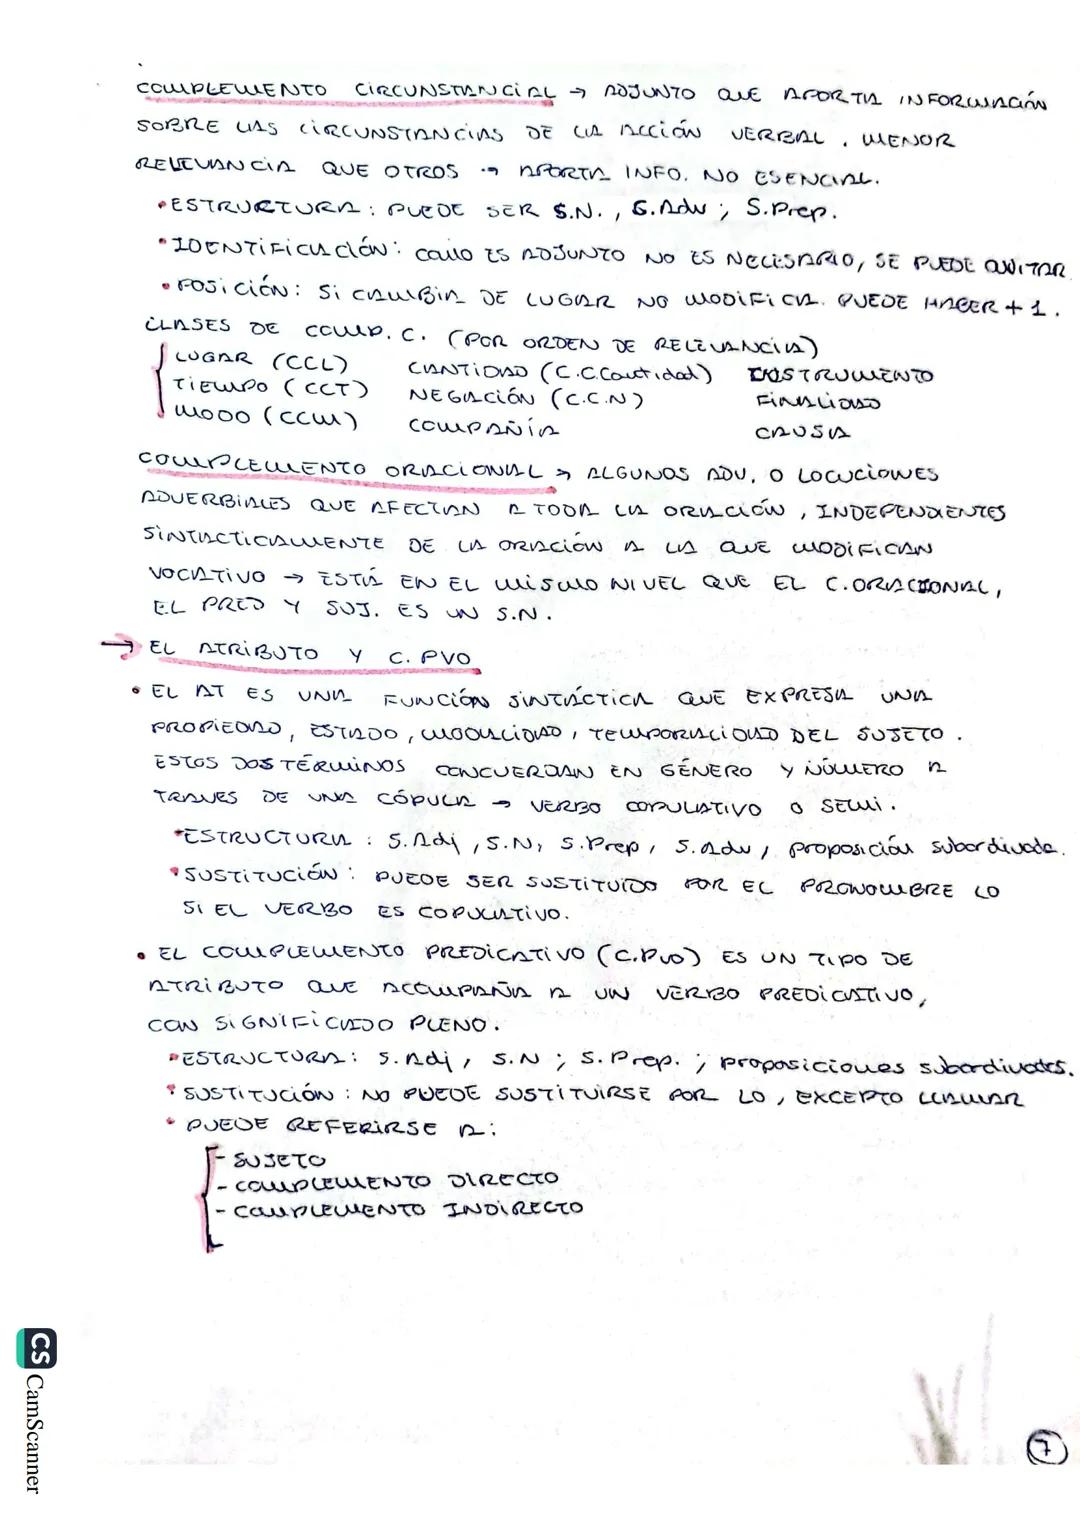 COMPLEMENTO CIRCUNSTANCIAL → ADJUNTO QUE APORTA INFORMACIÓN
SOBRE LAS CIRCUNSTANCIAS DE LA ACCIÓN VERBAL. MENOR
RELEVANCIA QUE OTROS → APORTA INFO. NO ESENCIAL.
• ESTRURTURA: PUEDE SER S.N., S.Adv; S.Prep.
• IDENTIFICACIÓN: COMO ES ADJUNTO NO ES NECESARIO, SE PUEDE QUITAR
• POSICIÓN: SI CAMBIA DE LUGAR NO MODIFICA. PUEDE HABER + 1.
CLASES DE COMP. C. (POR ORDEN DE RELEVANCIA)
LUGAR (CCL) CANTIDAD (C.C.Cantidad) INSTRUMENTO
TIEMPO (CCT) NEGACIÓN (C.C.N) FINALIDAD
MODO (CCM) COMPAÑÍA CAUSA
COMPLEMENTO ORACIONAL → ALGUNOS ADV. O LOCUCIONES
ADVERBIALES QUE AFECTAN A TODA LA ORACIÓN, INDEPENDIENTES
SINTÁCTICAMENTE DE LA ORACIÓN A LA QUE MODIFICAN
VOCATIVO → ESTÁ EN EL MISMO NIVEL QUE EL C.ORACIONAL,
EL PRED Y SUJ. ES UN S.N.
→ EL ATRIBUTO Y C. PVO
• EL AT ES UNA FUNCIÓN SINTÁCTICA QUE EXPRESA UNA
PROPIEDAD, ESTADO, MODALIDAD, TEMPORALIDAD DEL SUJETO.
ESTOS DOS TÉRMINOS CONCUERDAN EN GÉNERO Y NÚMERO A
TRAVES DE UNA CÓPULA → VERBO COPULATIVO O SEMI.
• ESTRUCTURA: S.Adj, S.N, S.Prep, S.Adv, proposición subordinada.
• SUSTITUCIÓN: PUEDE SER SUSTITUÍDO POR EL PRONOMBRE LO
SI EL VERBO ES COPULATIVO.
• EL COMPLEMENTO PREDICATIVO (C.Pvo) ES UN TIPO DE
ATRIBUTO QUE ACOMPAÑA A UN VERBO PREDICATIVO,
CON SIGNIFICADO PLENO.
• ESTRUCTURA: S.Adj, S.N; S.Prep.; proposiciones subordinadas.
• SUSTITUCIÓN: NO PUEDE SUSTITUIRSE POR LO, EXCEPTO LLAMAR
• PUEDE REFERIRSE A:
- SUJETO
- COMPLEMENTO DIRECTO
- COMPLEMENTO INDIRECTO
7
CS CamScanner